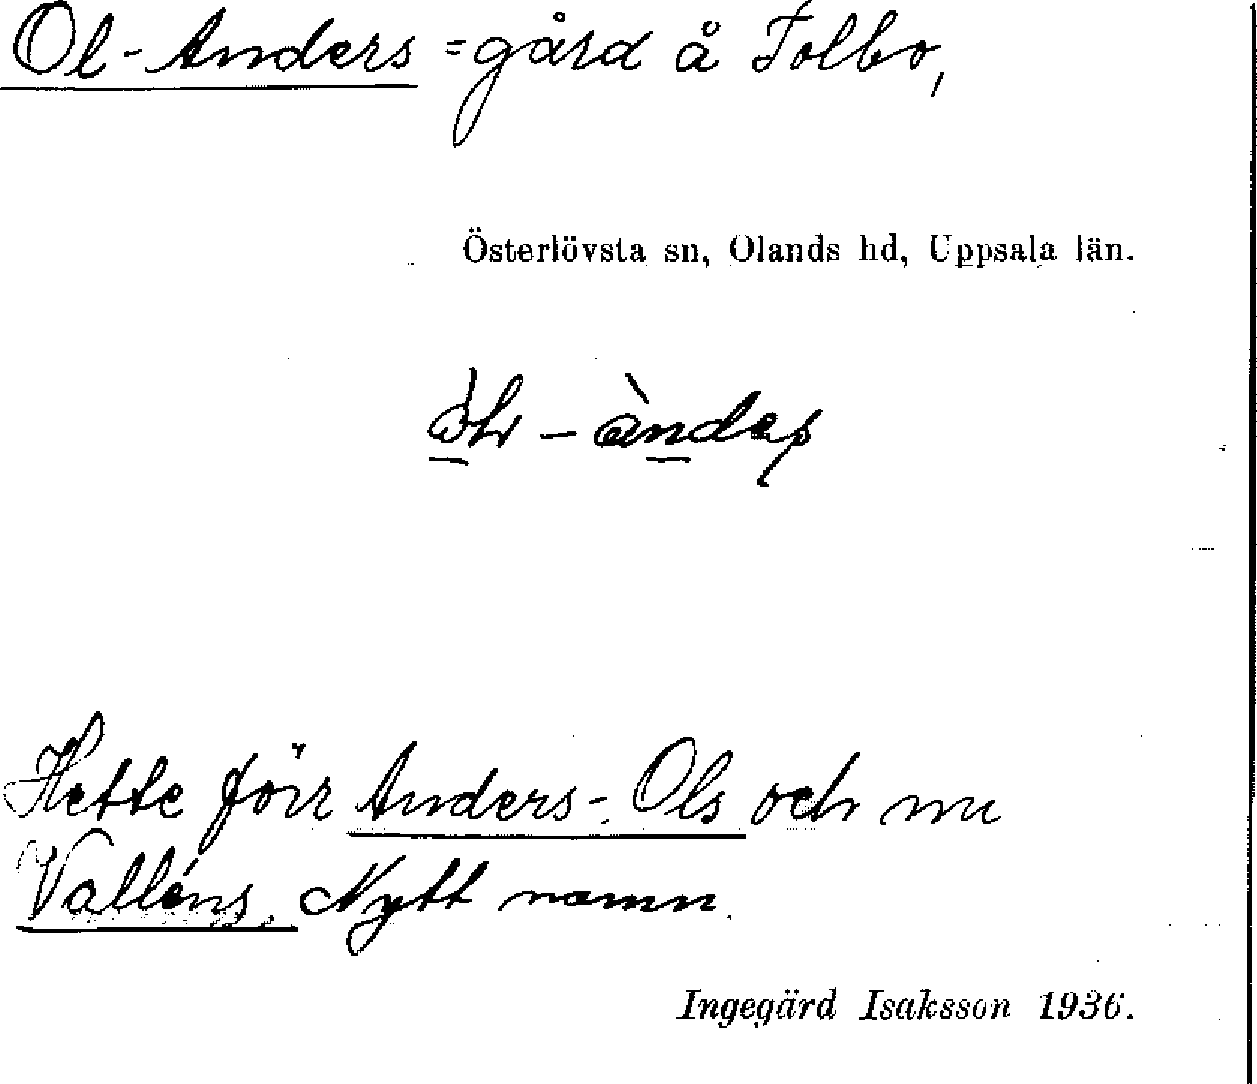 Ol-Anders = gård å Tolbo,
Österlövsta sn, Olands hd, Uppsala län.
Hette förr Anders-Ols och nu
Valléns. Nytt namn.
Ingegärd Isaksson 1936.